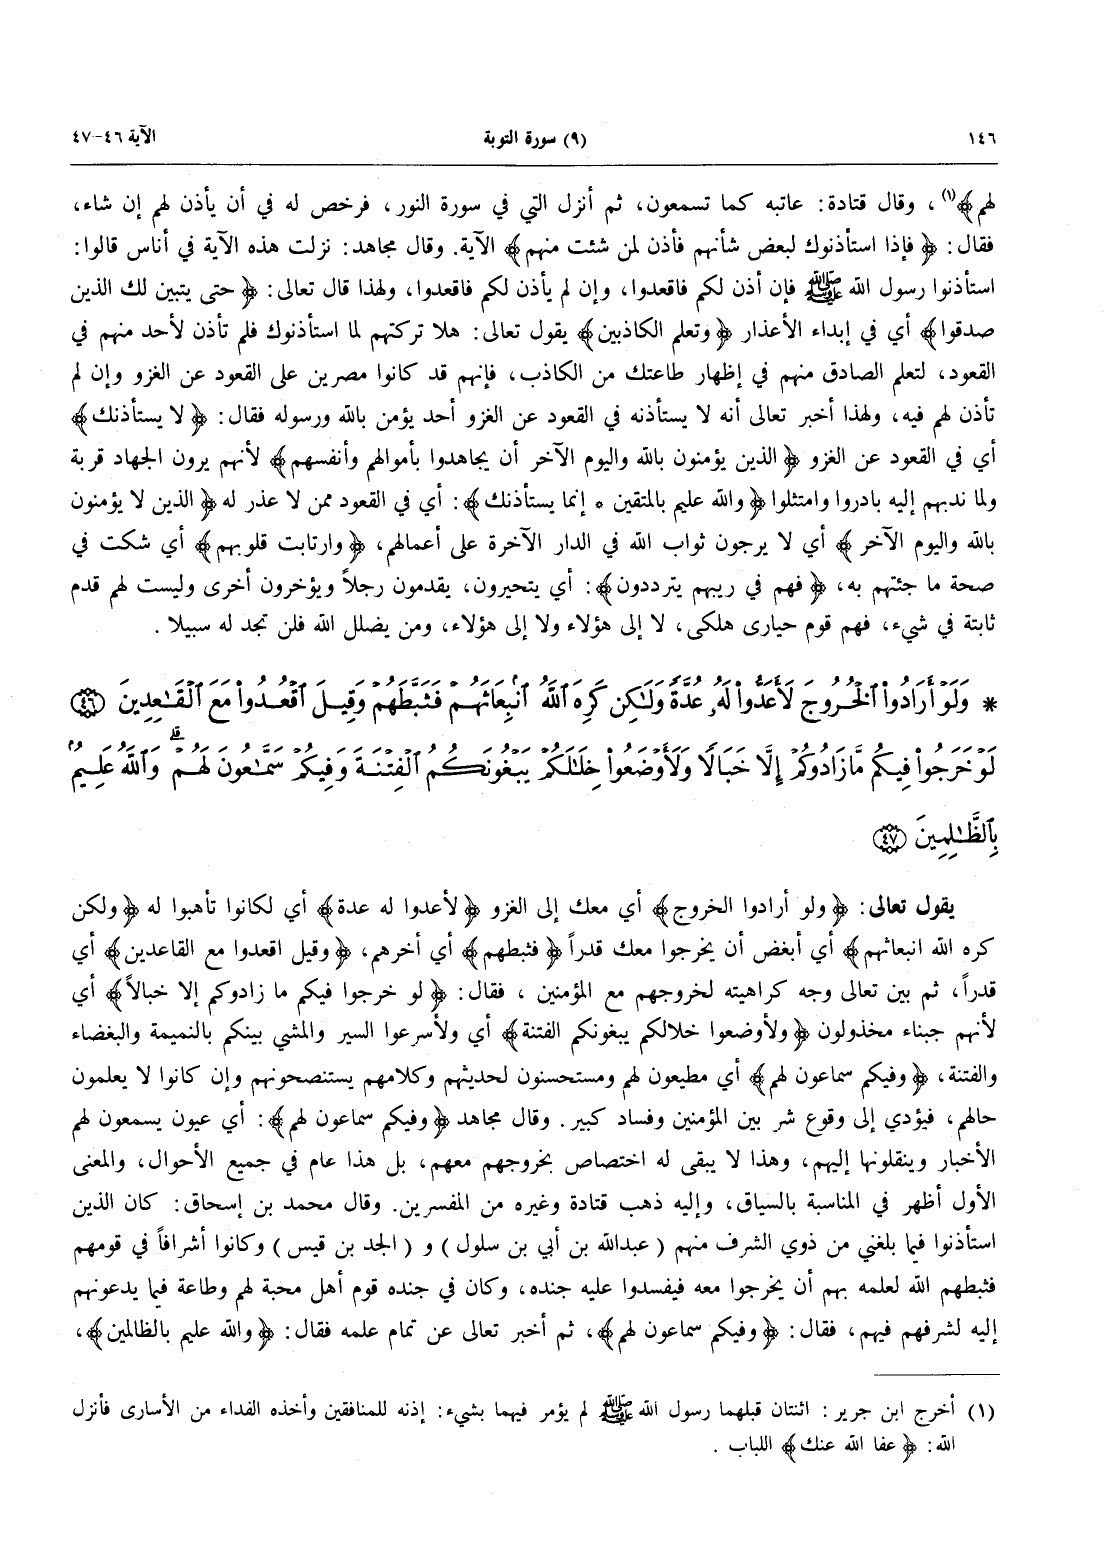 ١٤٦ (٩) سورة التوبة الآية ٤٦-٤٧
لهم﴾(١)، وقال قتادة: عاتبه كما تسمعون، ثم أنزل التي في سورة النور، فرخص له في أن يأذن لهم إن شاء،
فقال: ﴿ فإذا استأذنوك لبعض شأنهم فأذن لمن شئت منهم﴾ الآية. وقال مجاهد: نزلت هذه الآية في أناس قالوا:
استأذنوا رسول الله ﷺ فإن أذن لكم فاقعدوا، وإن لم يأذن لكم فاقعدوا، ولهذا قال تعالى: ﴿ حتى يتبين لك الذين
صدقوا﴾ أي في إبداء الأعذار ﴿وتعلم الكاذبين﴾ يقول تعالى: هلا تركتهم لما استأذنوك فلم تأذن لأحد منهم في
القعود، لتعلم الصادق منهم في إظهار طاعتك من الكاذب، فإنهم قد كانوا مصرين على القعود عن الغزو وإن لم
تأذن لهم فيه، ولهذا أخبر تعالى أنه لا يستأذنه في القعود عن الغزو أحد يؤمن بالله ورسوله فقال: ﴿ لا يستأذنك﴾
أي في القعود عن الغزو ﴿ الذين يؤمنون بالله واليوم الآخر أن يجاهدوا بأموالهم وأنفسهم﴾ لأنهم يرون الجهاد قربة
ولما ندبهم إليه بادروا وامتثلوا ﴿ والله عليم بالمتقين * إنما يستأذنك﴾: أي في القعود ممن لا عذر له ﴿ الذين لا يؤمنون
بالله واليوم الآخر ﴾ أي لا يرجون ثواب الله في الدار الآخرة على أعمالهم، ﴿ وارتابت قلوبهم﴾ أي شكت في
صحة ما جئتهم به، ﴿ فهم في ريبهم يترددون﴾: أي يتحيرون، يقدمون رجلاً ويؤخرون أخرى وليست لهم قدم
ثابتة في شيء، فهم قوم حيارى هلكى، لا إلى هؤلاء ولا إلى هؤلاء، ومن يضلل الله فلن تجد له سبيلا .
* وَلَوْ أَرَادُوا۟ ٱلْخُرُوجَ لَأَعَدُّوا۟ لَهُۥ عُدَّةً وَلَـٰكِن كَرِهَ ٱللَّهُ ٱنۢبِعَاثَهُمْ فَثَبَّطَهُمْ وَقِيلَ ٱقْعُدُوا۟ مَعَ ٱلْقَـٰعِدِينَ ﴿٤٦﴾
لَوْ خَرَجُوا۟ فِيكُم مَّا زَادُوكُمْ إِلَّا خَبَالًا وَلَأَوْضَعُوا۟ خِلَـٰلَكُمْ يَبْغُونَكُمُ ٱلْفِتْنَةَ وَفِيكُمْ سَمَّـٰعُونَ لَهُمْ ۗ وَٱللَّهُ عَلِيمٌۢ
بِٱلظَّـٰلِمِينَ ﴿٤٧﴾
يقول تعالى: ﴿ولو أرادوا الخروج﴾ أي معك إلى الغزو ﴿لأعدوا له عدة﴾ أي لكانوا تأهبوا له ﴿ولكن
كره الله انبعاثهم﴾ أي أبغض أن يخرجوا معك قدراً ﴿ فثبطهم﴾ أي أخرهم، ﴿وقيل اقعدوا مع القاعدين﴾ أي
قدراً، ثم بين تعالى وجه كراهيته لخروجهم مع المؤمنين ، فقال: ﴿ لو خرجوا فيكم ما زادوكم إلا خبالاً﴾ أي
لأنهم جبناء مخذولون ﴿ولأوضعوا خلالكم يبغونكم الفتنة﴾ أي ولأسرعوا السير والمشي بينكم بالنميمة والبغضاء
والفتنة، ﴿ وفيكم سماعون لهم﴾ أي مطيعون لهم ومستحسنون لحديثهم وكلامهم يستنصحونهم وإن كانوا لا يعلمون
حالهم، فيؤدي إلى وقوع شر بين المؤمنين وفساد كبير. وقال مجاهد ﴿وفيكم سماعون لهم﴾: أي عيون يسمعون لهم
الأخبار وينقلونها إليهم، وهذا لا يبقى له اختصاص بخروجهم معهم، بل هذا عام في جميع الأحوال، والمعنى
الأول أظهر في المناسبة بالسياق، وإليه ذهب قتادة وغيره من المفسرين. وقال محمد بن إسحاق: كان الذين
استأذنوا فيما بلغني من ذوي الشرف منهم ( عبدالله بن أبي بن سلول ) و ( الجد بن قيس ) وكانوا أشرافاً في قومهم
فثبطهم الله لعلمه بهم أن يخرجوا معه فيفسدوا عليه جنده، وكان في جنده قوم أهل محبة لهم وطاعة فيما يدعونهم
إليه لشرفهم فيهم، فقال: ﴿ وفيكم سماعون لهم﴾، ثم أخبر تعالى عن تمام علمه فقال: ﴿ والله عليم بالظالمين﴾،
(١) أخرج ابن جرير : اثنتان قبلهما رسول الله ﷺ لم يؤمر فيهما بشيء: إذنه للمنافقين وأخذه الفداء من الأسارى فأنزل
الله: ﴿ عفا الله عنك﴾ اللباب .